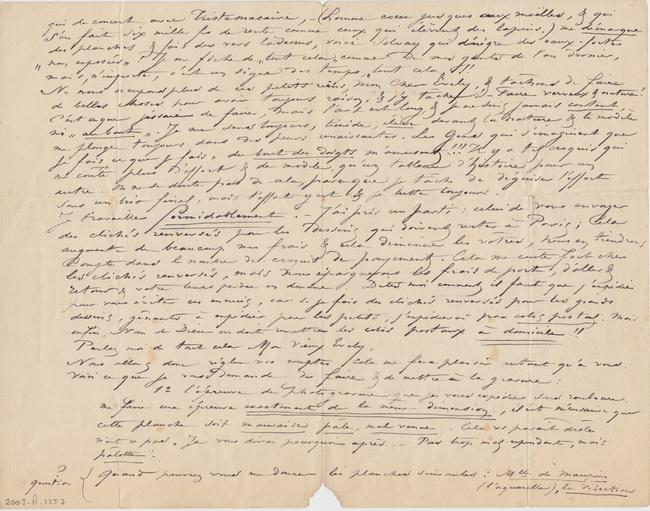 qui de concert avec Tristemacaire, (homme cocu jusques aux moëlles, & qui
s'en fait six mille fr de rente comme ceux qui élèvent des lapins,) me démarque
des planches & fais des vers là dessus, voici Solvay qui dénigre des eaux fortes
"non exposées". Je me fiche de tout cela, comme de mes gants de l'an dernier,
mais, n'importe, c'est un signe des temps, tout cela !!!
Ne nous occupons plus de ces petits riens, mon Cher Evely, & tachons de faire
de belles choses pour avoir toujours raison, & s'y tacher. Faire nerveux & naturé
C'est à quoi j'essaie de faire, mais l'art est long & je ne suis jamais content,
ni "au bout". Je me sens toujours, timide, devant la nature & le modèle
me plonge toujours dans des peurs renaissantes. Les Gens qui s'imaginent que
je fais ce que je fais, du bout des doigts m'amusent !!! Il y a tel croquis qui
me coute plus d'effort & de modèle, qu'un tableau d'histoire pour un
autre. On ne se doute pas de cela, parce que je tâche de déguiser l'effort
sous un brio final, mais l'effort y est & je lutte toujours.
Je travaille formidablement. – J'ai pris un parti : celui de vous envoyer
des clichés renversés pour les dessins qui doivent rester à Paris ; Cela
augmente de beaucoup mes frais & cela diminue les vôtres, nous en tiendrons
compte dans le nombre de croquis de payement. Cela me coute fort cher
les clichés renversés, mais nous épargnerons les frais de port, d'aller &
retour & votre temps perdu en douane. Dites moi comment il faut que j'expédie
pour vous éviter ces ennuis, car si je fais des clichés renversés pour les grands
dessins, gênants à expédier, pour les petits, j'expédierai par colis postal. Mais
enfin, Nom de Dieu on doit remettre les colis postaux à domicile !!
Parlez moi de tout cela Mon Vieux Evely.
Nous allons donc régler nos comptes, Cela me fera plaisir autant qu'à vous.
Voici ce que je vous demande de faire & de mettre à la gravure :
1º l'épreuve de Photogravure que je vous expédie sous rouleau.
me faire une épreuve exactement de la même dimension, il est nécessaire que
cette planche soit mauvaise pâle, mal venue. Cela vous paraît drôle
n'est ce pas. Je vous dirai pourquoi après. – Pas trop mal cependant, mais
palotte !
? question { Quand pourrez vous me donner les planches suivantes : Mlle de Maupin
(l'aquarelle), la Dissection
2009.A.1257